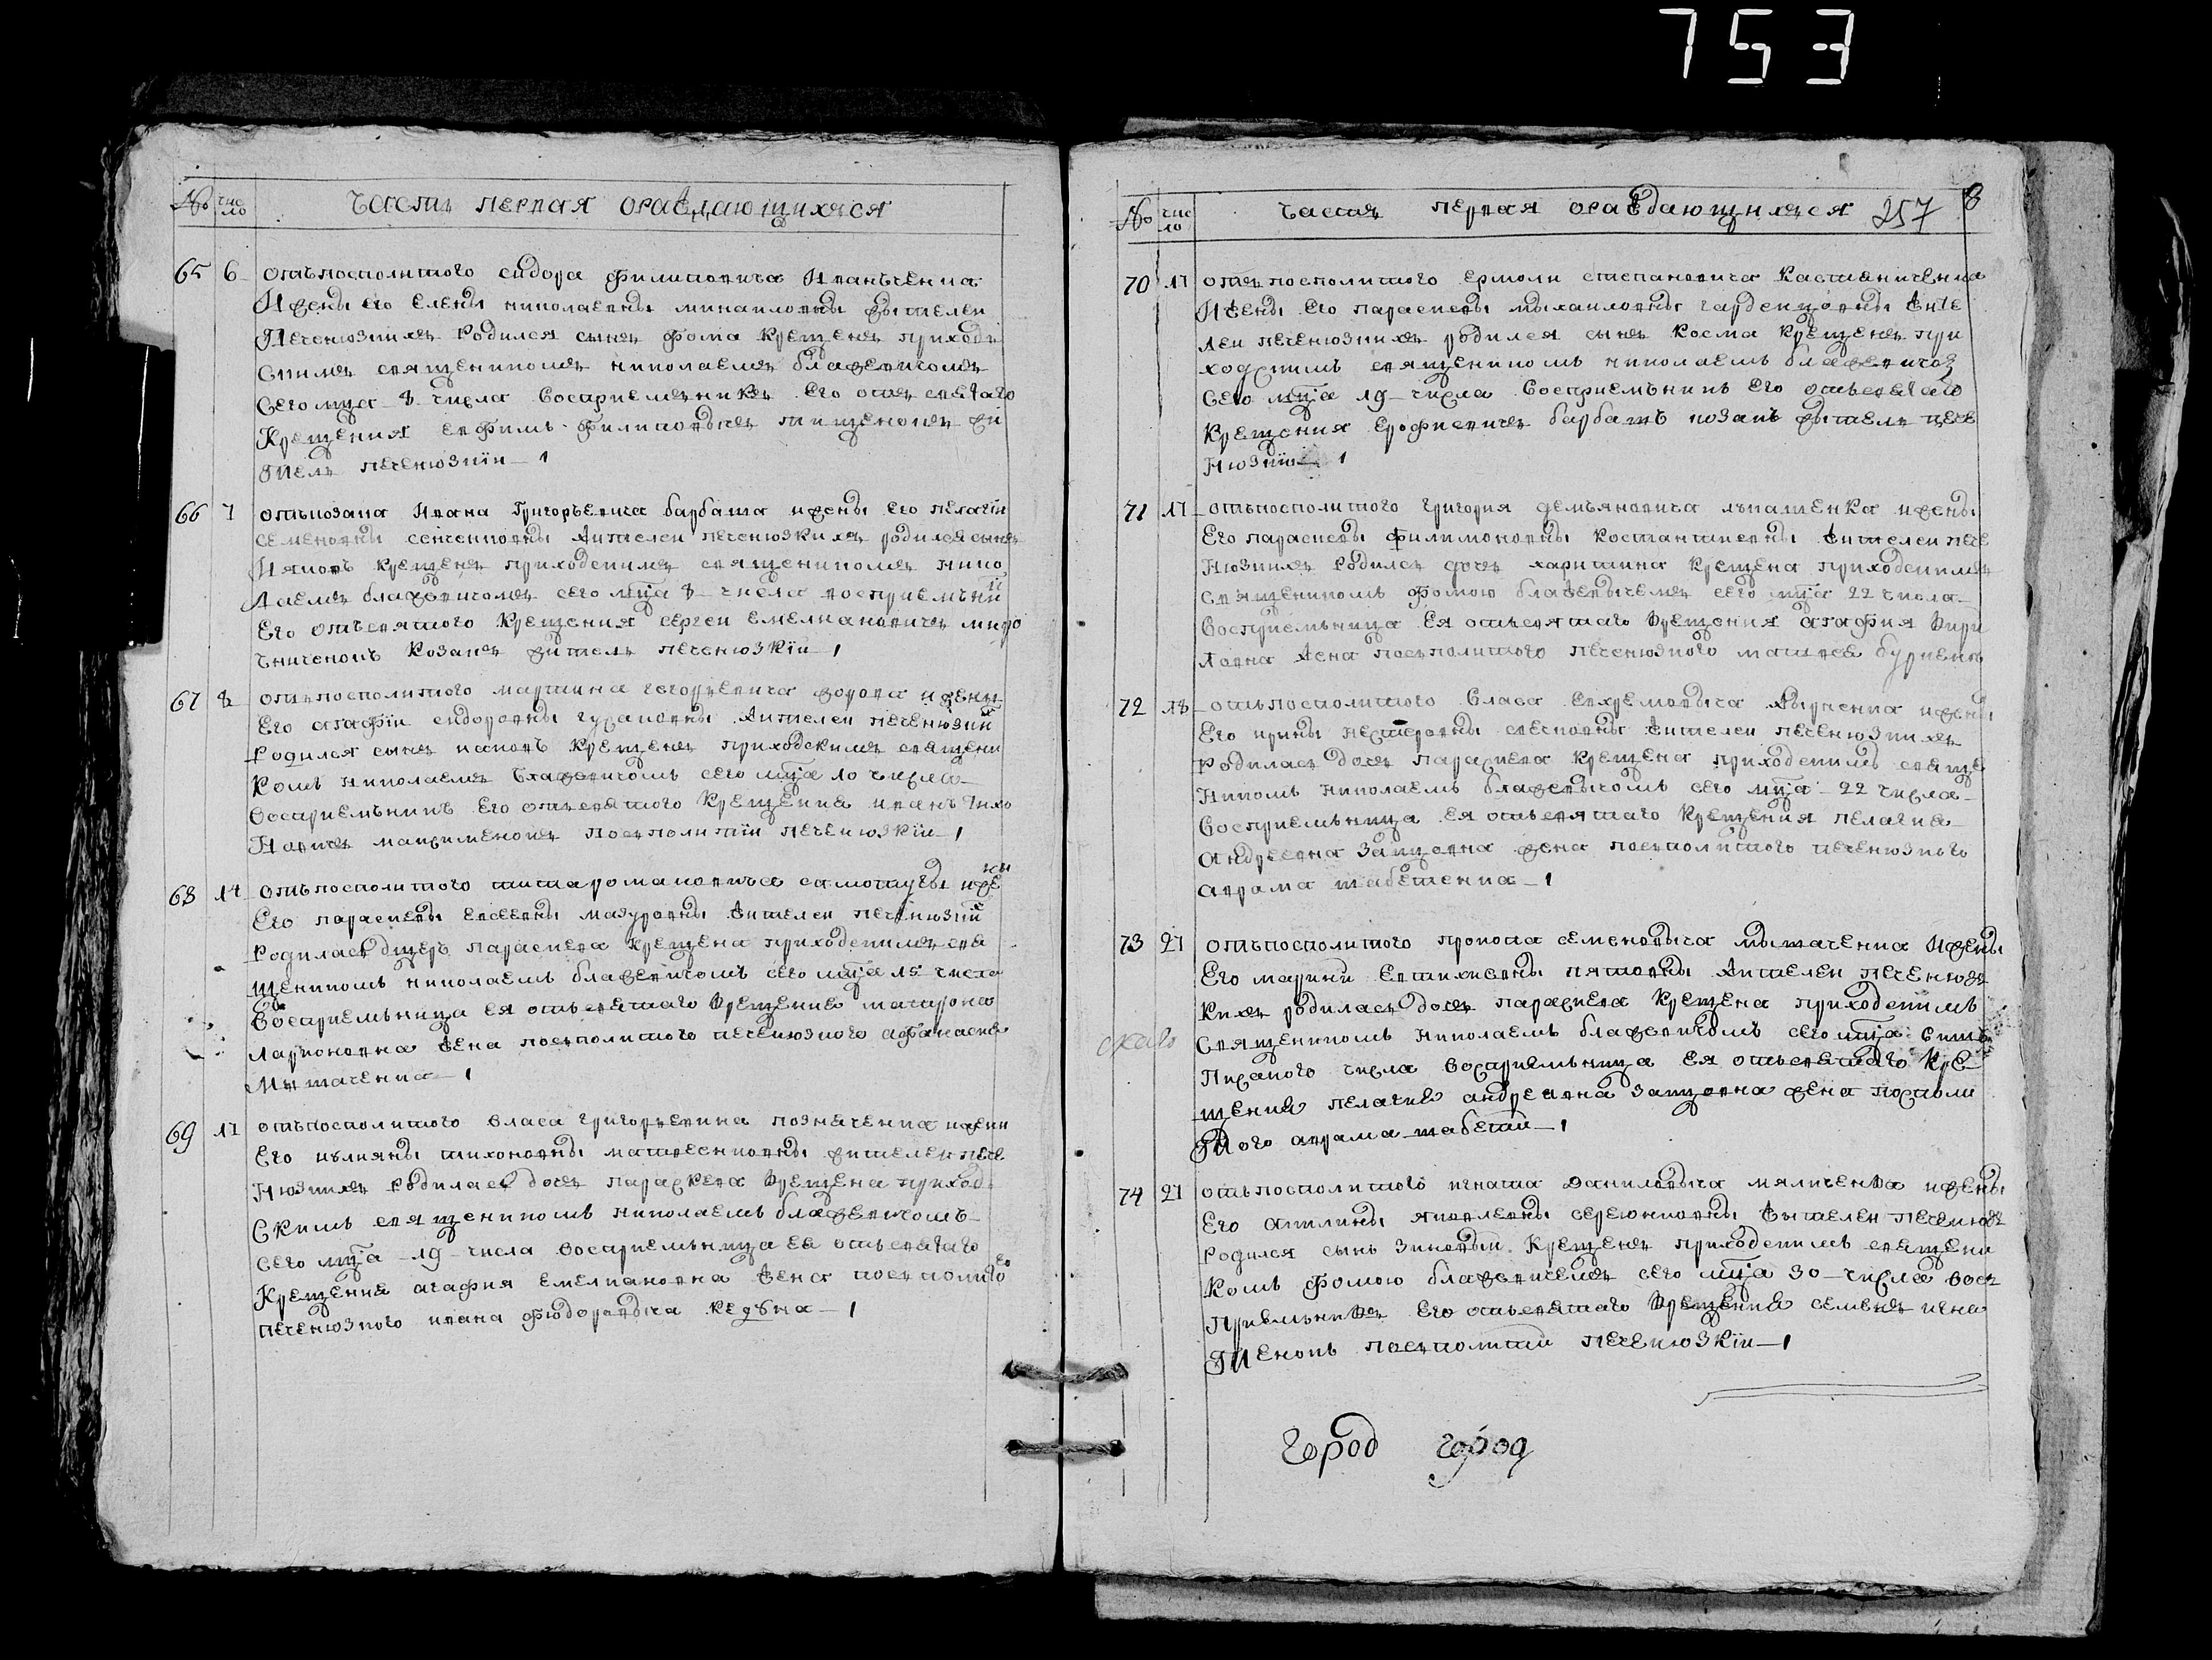 753
№ число Часть первая ораждающихся
65 6 отъ посполитого сидора филиповича Иванъченка
И жены его Елены николаевны минаиловны жытелеи
Печенюзкихъ Родился сынъ фома Крещенъ приходъ
скимъ священикомъ николаемъ блажевичомъ
Сего мца 8 числа Восприемъникъ Его отъ святаго
Крещения евфимъ филиповычъ тищенокъ жи
тель печенюзкїи 1
66 7 отъ козака Ивана Григорьевича барбаша и жены Его пелагїи
семеновны сенченковны жителеи печенюзкихъ родился сынъ
Ияковъ Крещенъ приходскимъ священикомъ нико
лаемъ блажевичомъ сего мца 8 числа восприемъникъ
Его отъ святого Крещения сергеи Емелиановичъ миро
шниченокъ Козакъ житель печенюзкїи 1
67 8 отъ посполитого мартина григорьевича жорова и жены
Его агафїи сидоровны гусаковны жителеи печенюзкихъ
Родился сынъ иаковъ Крещенъ приходскимъ священи
комъ николаемъ блажевичомъ сего мца 10 числа
Восприемъникъ Его отъ святого Крещения иванъ тихо
новичъ максименокъ посполитїи печенюзкїи 1
68 14 отъ посполитого тита романовича самотуги и жены
Его параскевы Евсеевны мазуровны жителеи печенюзкихъ
Родилась дщерь параскева Крещена приходскимъ свя
щеникомъ николаемъ блажевичомъ сего мца 15 числа
Восприемъница Ея отъ святаго Крещения матрона
ларионовна жена посполитого печенюзкого афанасия
Мыташенка 1
69 17 отъ посполитого власа григорьевича позначенка и жени
Его иулияны тихоновны матвеенковны жителеи пече
Нюзкихъ Родилась дочь параскева Крещена приход
Скимъ священикомъ николаемъ блажевичомъ
сего мца 19 числа восприемъница Ея отъ святаго
Крещения агафия Емелиановна жена посполитого
печенюзкого ивана фюдоровыча 1
№ число часть первая ораждающихся 257 8
70 17 отъ посполитого Ермоли степановича Кастяниченка
И жены Его параскевы мыхаиловны жите
леи печенюзкихъ родился сынъ Косма Крещенъ при
ходскимъ священикомъ николаемъ блажевичо
Сего мца 19 числа Восприемъникъ Его отъ святаго
Крещения Ерофиевичъ барбашъ козакъ житель пече
Нюзкїи 1
71 17 отъ посполитого григория демьяновича лъпашенка и жены
Его параскевы филимоновны Костантиевны жителеи пече
Нюзкихъ Родилсь дочь харитина Крещена приходскимъ
священикомъ фомою блажевычемъ сего мца 22 числа
Восприемъница Ея отъ святаго Крещения агафия Кири
ловна жена посполитого печенюзкого матвея
72 18 отъ посполитого Власа Евхремовыча и жены
Его ирины нестеровны жителеи печенюзкихъ
Родилась дочь параскева Крещена приходскимъ свяще
Никомъ николаемъ блажевычомъ сего мца 22 числа
Восприемъница Ея отъ святаго Крещения пелагия
андреевна Зацовна жена посполитого печенюзкого
аврама шабетенка 1
73 27 отъ посполитого прокопа семеновыча мыташенка И жены
Его марини Евтихиевны жителеи печенюз
Кихъ родилась дочь параскева Крещена приходскимъ
Священикомъ николаемъ блажевичомъ сего мца
Писаного числа восприемъница Ея отъ святаго Кре
щения пелагия андреевна Зацовна жена посполи
того аврама шабетни 1
74 27 отъ посполитого игната Даниловыча мяличенка и жены
Его акилины яковлевны жытелеи печенюзк
Родился сынъ Зиновыи Крещенъ приходскимъ священи
Комъ фомою блажевичемъ сего мца 30 числа вос
Приемъникъ Его отъ святаго Крещения семенъ игна
тенокъ посполитїи печенюзкїи 1
город город